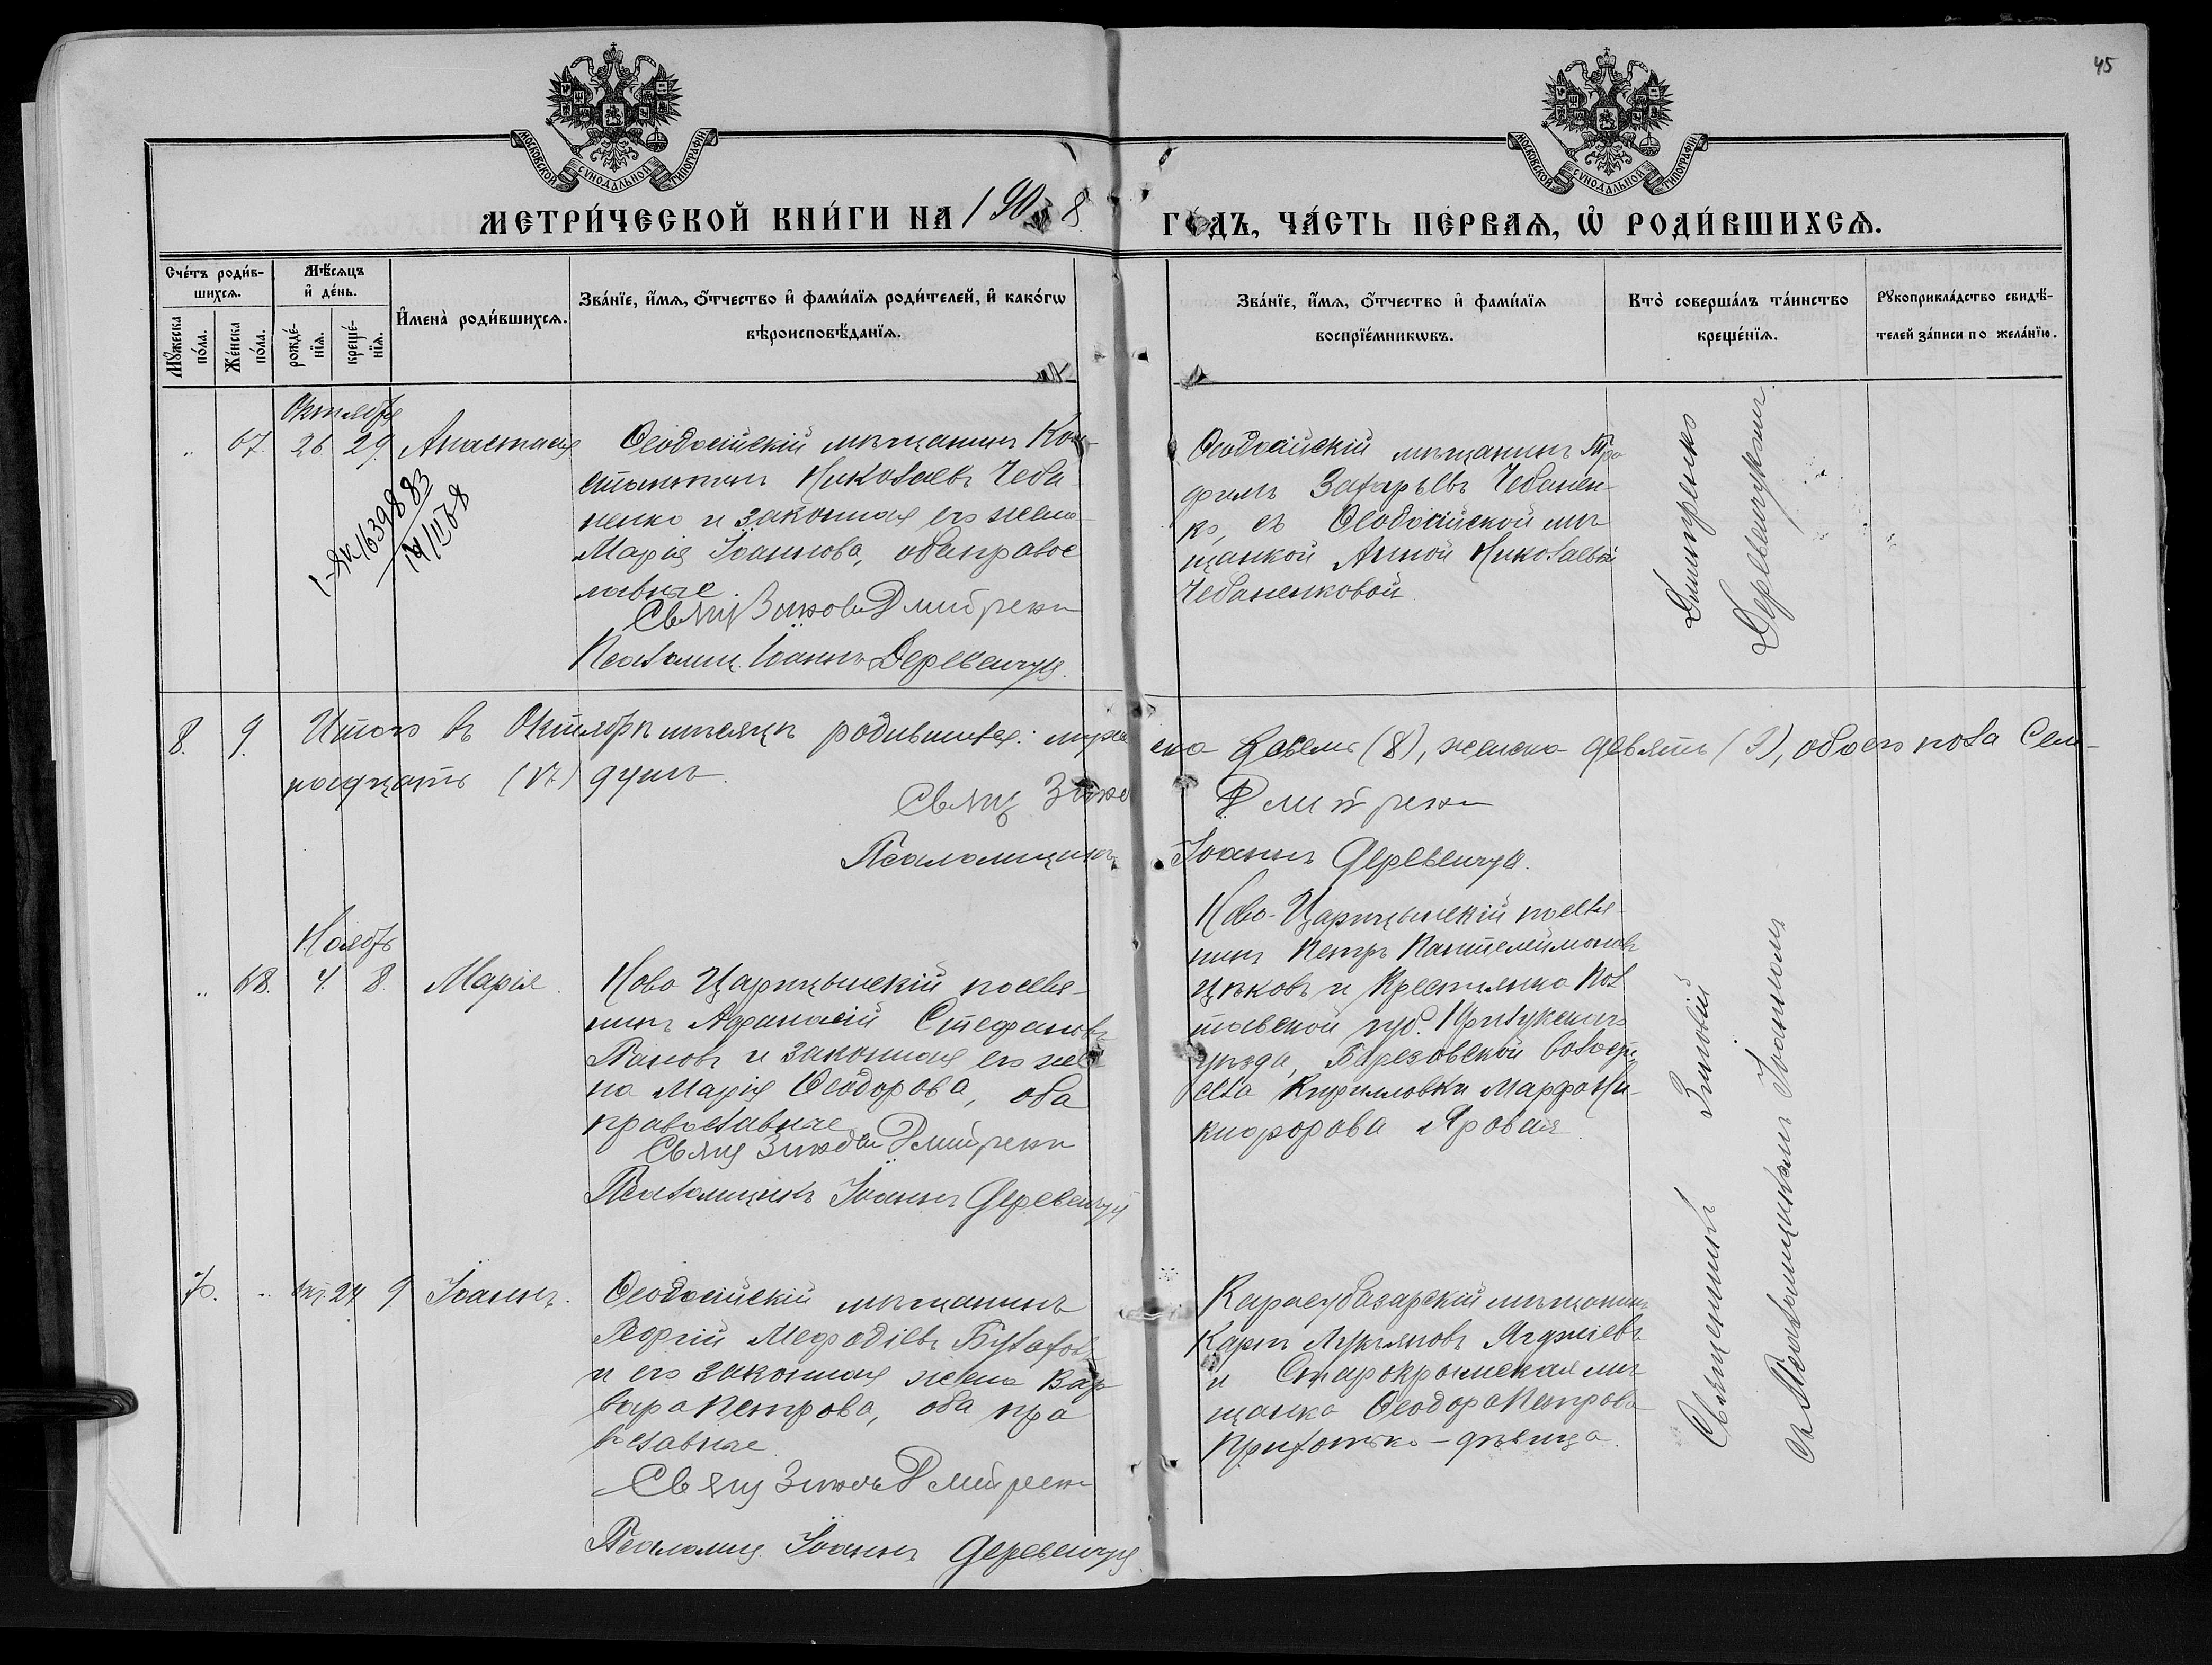 45
МОСКОВСКОЙ СѴНОДАЛЬНОЙ ТИПОГРАФІИ
МОСКОВСКОЙ СѴНОДАЛЬНОЙ ТИПОГРАФІИ
МЕТРИ́ЧЕСКОЙ КНИ́ГИ НА 1908
ГО́ДЪ, ЧА́СТЬ ПЕ́РВАѦ, Ѡ҆ РОДИ́ВШИХСѦ.
Сче́тъ роди́в-
шихсѧ.
Мꙋ́жеска
по́ла.
Же́нска
по́ла.
Мѣ́сѧцъ
и҆ де́нь.
рожде́-
нїѧ.
креще́-
нїѧ.
И҆мена̀ роди́вшихсѧ.
Зва́нїе, и҆́мѧ, ѻ҆́тчество и҆ фами́лїѧ роди́телей, и҆ како́гѡ
вѣроисповѣ́данїѧ.
Зва́нїе, и҆́мѧ, ѻ҆́тчество и҆ фами́лїѧ
воспрїе́мникѡвъ.
Кто̀ соверша́лъ та́инство
креще́нїѧ.
Рꙋкоприкла́дство свидѣ́-
телей за́писи по жела́нїю.
Октября
„ 67. 26 29. Анастасія
1-ЯК 163988 83
Ѳеодосійскій мѣщанинъ Кон-
стантинъ Николаевъ Чеба-
ненко и законная его жена
Марія Іоаннова, оба правос
лавные.
Свящ Зиновій Дмитренко
Псаломщ. Іоаннъ Деревенчук.
Ѳеодосійскій мѣщанинъ Тро
фимъ Захарьевъ Чебанен-
ко, съ Ѳеодосійской мѣ
щанкой Анной Николаевой
Чебаненковой
Дмитренко
Деревенчукомъ
8. 9. Итого въ Октябрѣ мѣсяцѣ родившихся: муже ска восемь (8), женска девять (9), обоего пола Сем-
надцать (17) душъ.
Свящ Зинов Дмитренко
Псаломщикъ Іоаннъ Деревенчук.
Ноябрь
„ 68. 4. 8. Марія
Ново Царицынскій поселя-
нинъ Афанасій Стефановъ
Пановъ и законная его же
на Марія Ѳеодорова, оба
православные
Свящ Зиновій Дмитренко
Псаломщикъ Іоаннъ Деревенчук
Ново-Царицынскій поселя-
нинъ Петръ Пантелеймоновъ
Цѣковъ и Крестьянка Пол
тавской губ. Прилукскаго
уѣзда, Березовской волости,
села Кирилловки Марфа Ни-
кифорова Яровая
Священникъ Зиновій
съ Псаломщикомъ Іоанномъ
70. „ Окт. 24 9 Іоаннъ.
Ѳеодосійскій мѣщанинъ
Георгій Мефодіевъ Булаховъ
и его законная жена Вар
вара Петрова, оба пра
вославные.
Свящ Зиновій Дмитренко
Псаломщ. Іоаннъ Деревенчук.
Карасубазарскій мѣщанинъ
Карпъ Лукьяновъ
и Старокрымская мѣ
щанка Ѳеодора Петрова
Прихотько-дѣвица.